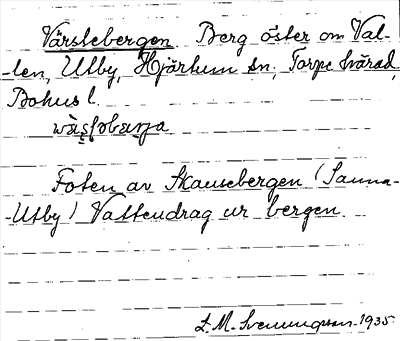 Värstebergen Berg öster om Val-
-len, Utby, Hjärtum sn, Torpe härad,
Bohus l.
Foten av Skausebergen (Sauna-
-Utby) Vattendrag ur bergen.
L. M. Svenungsson 1935